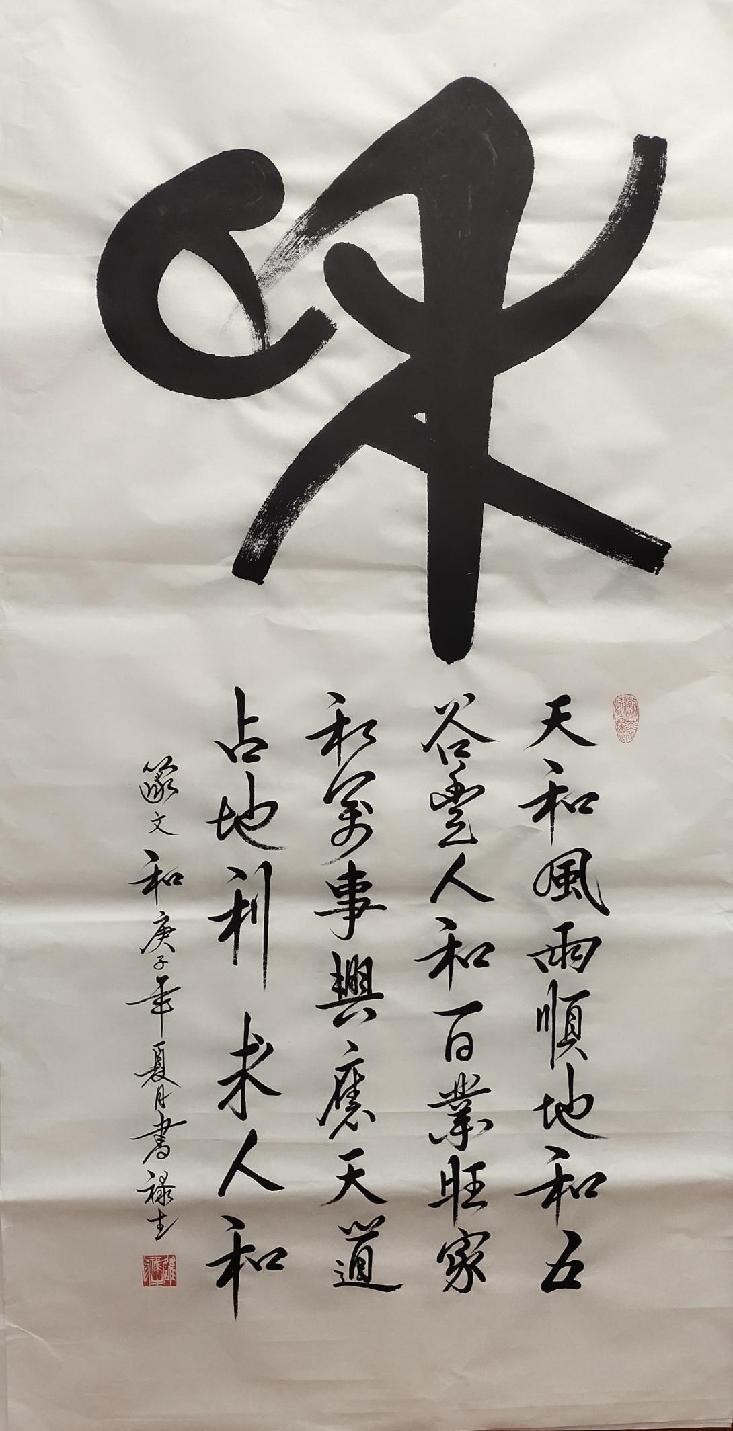 和
天和風雨順地和五
谷豐人和百業旺家
和萬事興應天道
占地利求人和
篆文和庚子年夏月書禄